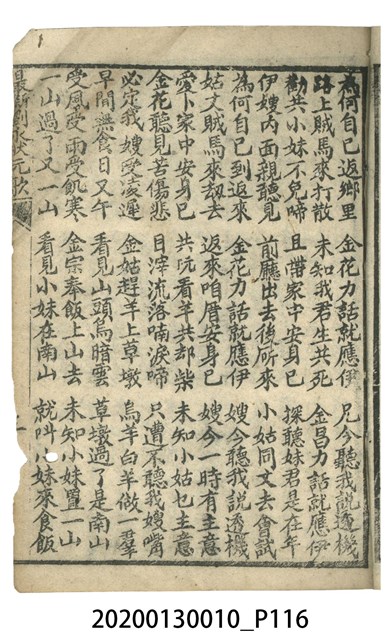 為何自己返鄉里 金花力話就應伊 兄今聽我說透機
路上賊馬來打散 未知我君生共死 金昌力話就應伊
勸共小妹不免啼 且帶家中安身已 探聽妹君是在年
伊嫂內面親聽見 前廳出去後所來 小姑同丈去會試
為何自己到返來 金花力話就應伊 嫂今聽我說透機
姑丈賊馬來劫去 返來咱厝安身已 嫂今一時有主意
愛卜家中安身已 共阮看羊共却柴 未知小姑乜主意
金花聽見苦傷悲 目滓流落喃淚啼 只遭不聽我嫂嘴
必定我嫂受凌遲 金姑趕羊上草墩 烏羊白羊做一羣
早間無食日又午 看見山頭烏暗雲 草墩過了是南山
受風受雨受飢寒 金宗奉飯上山去 未知小妹置一山
一山過了又一山 看見小妹在南山 就叫小妹來食飯
20200130010_P116